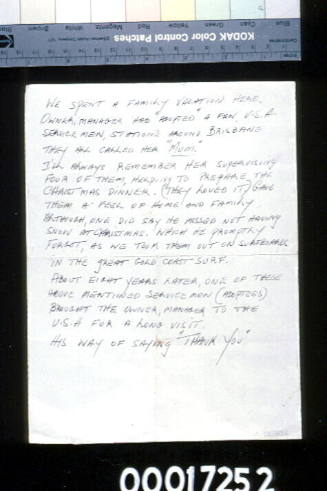 Blue Cyan Green Yellow Red Magenta White Brown Black
KODAK Color Control Patches
WE SPENT A FAMILY VACATION HERE.
OWNER, MANAGER HAD "ADOPTED" A FEW U.S.A
SERVICEMEN, STATIONED AROUND BRISBANE
THEY ALL CALLED HER "MUM".
I'LL ALWAYS REMEMBER HER SUPERVISING
FOUR OF THEM, HELPING TO PREPARE THE
CHRISTMAS DINNER. (THEY LOVED IT) GAVE
THEM A FEEL OF HOME AND FAMILY
ALTHOUGH, ONE DID SAY HE MISSED NOT HAVING
SNOW AT CHRISTMAS. WHICH HE PROMPTLY
FORGOT, AS WE TOOK THEM OUT ON SURFBOARDS
IN THE GREAT GOLD COAST SURF.
ABOUT EIGHT YEARS LATER, ONE OF THESE
ABOVE MENTIONED SERVICEMEN (ADOPTEES)
BROUGHT THE OWNER, MANAGER TO THE
U.S.A FOR A LONG VISIT.
HIS WAY OF SAYING "THANK YOU"
00017252